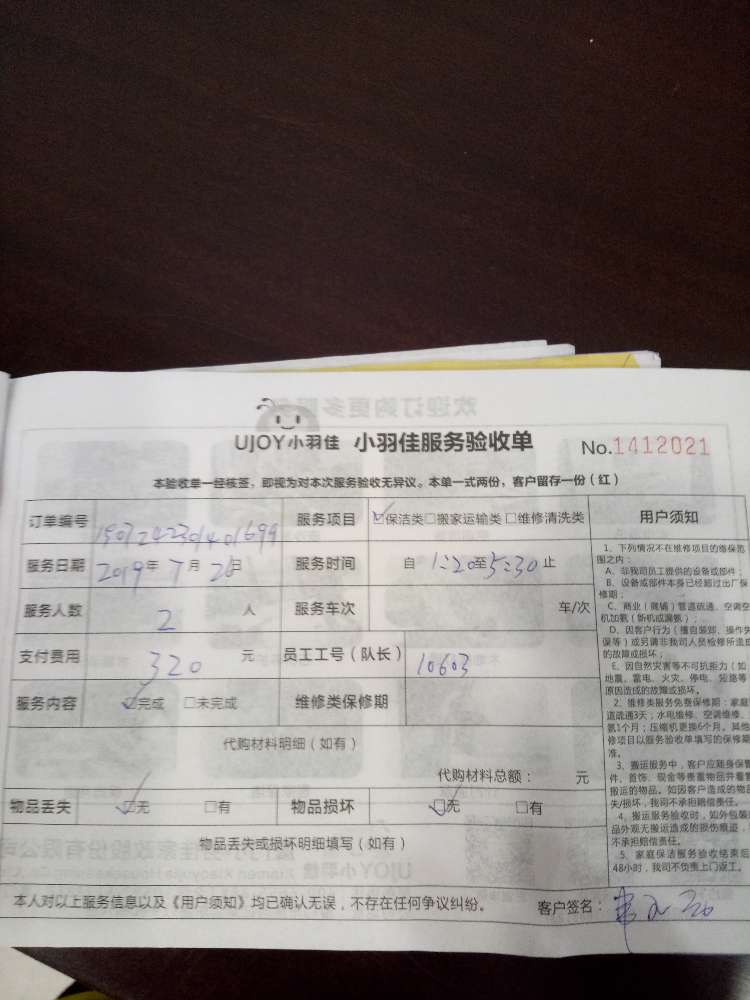 UJOY小羽佳 小羽佳服务验收单 No.1412021
本验收单一经核签，即视为对本次服务验收无异议。本单一式两份，客户留存一份（红）
订单编号 服务项目 ☑保洁类□搬家运输类□维修清洗类 用户须知
服务日期 2019年7月26日 服务时间 自1:20至5:30止
服务人数 2 人 服务车次 车/次
支付费用 320 元 员工工号（队长） 10603
服务内容 ☑完成 □未完成 维修类保修期
代购材料明细（如有）
代购材料总额： 元
物品丢失 ☑无 □有 物品损坏 ☑无 □有
物品丢失或损坏明细填写（如有）
本人对以上服务信息以及《用户须知》均已确认无误，不存在任何争议纠纷。 客户签名：
1、下列情况不在维修项目的维保范
围之内：
A、非我司员工提供的设备或部件；
B、设备或部件本身已经超过出厂保
修期；
C、商业（商铺）管道疏通、空调空
机加氨（新机或漏氨）；
D、因客户行为（擅自装卸、操作失
保等）或另请非我司人员检修所造成
的故障或损坏；
E、因自然灾害等不可抗拒力（如
地震、雷电、火灾、停电、短路等
原因造成的故障或损坏。
2、维修类服务免费保修期：家庭
道疏通3天；水电维修、空调维修、
氨1个月；压缩机更换6个月。其他
修项目以服务验收单填写的保修期
准。
3、搬运服务中，客户应随身保管
件、首饰、现金等贵重物品并看管
搬运的物品。如因客户造成的物品
失/损坏，我司不承担赔偿责任。
4、搬运服务验收时，如外包装
品外观无搬运造成的损伤痕迹，
不承担赔偿责任。
5、家庭保洁服务验收结束超
48小时，我司不负责上门返工。